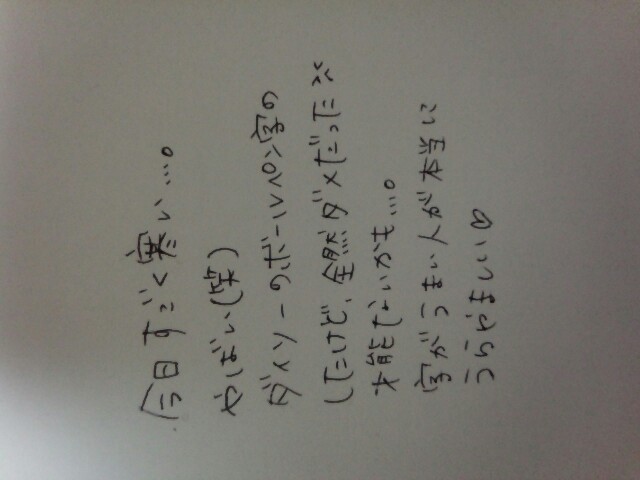 今日すごく寒い...。
やばい(笑)
ダイソーのボールペン字の
したけど、全然ダメだった
才能ないかも...。
字がうまい人が本当に
うらやましい